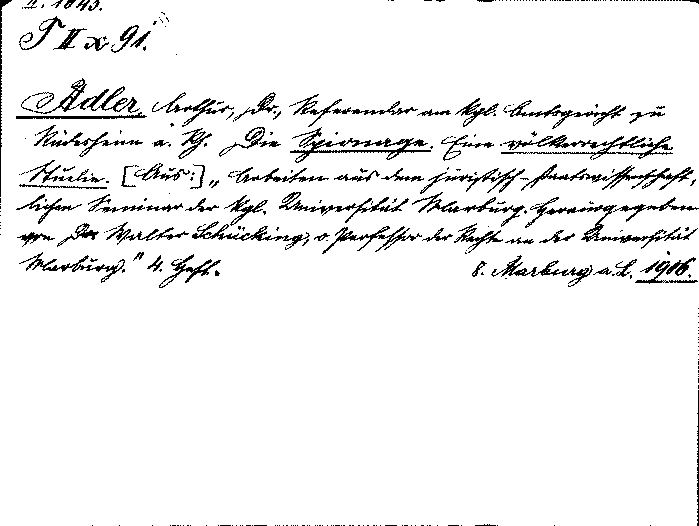 II. 1843.
T II x 91.
Adler, Arthur, Dr., Referendar am Kgl. Amtsgericht zu
Rüdesheim a. Rh. Die Spionage. Eine völkerrechtliche
Studie. [Aus:] „Arbeiten aus dem juristisch-staatswissenschaft-
lichen Seminar der Kgl. Universität Marburg. Herausgegeben
von Dr. Walter Schücking, o. Professor der Rechte an der Universität
Marburg." 4. Heft.
8. Marburg a. L. 1906.